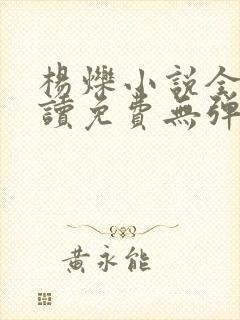 楊爍小說全
讀免費無彈
黃永能